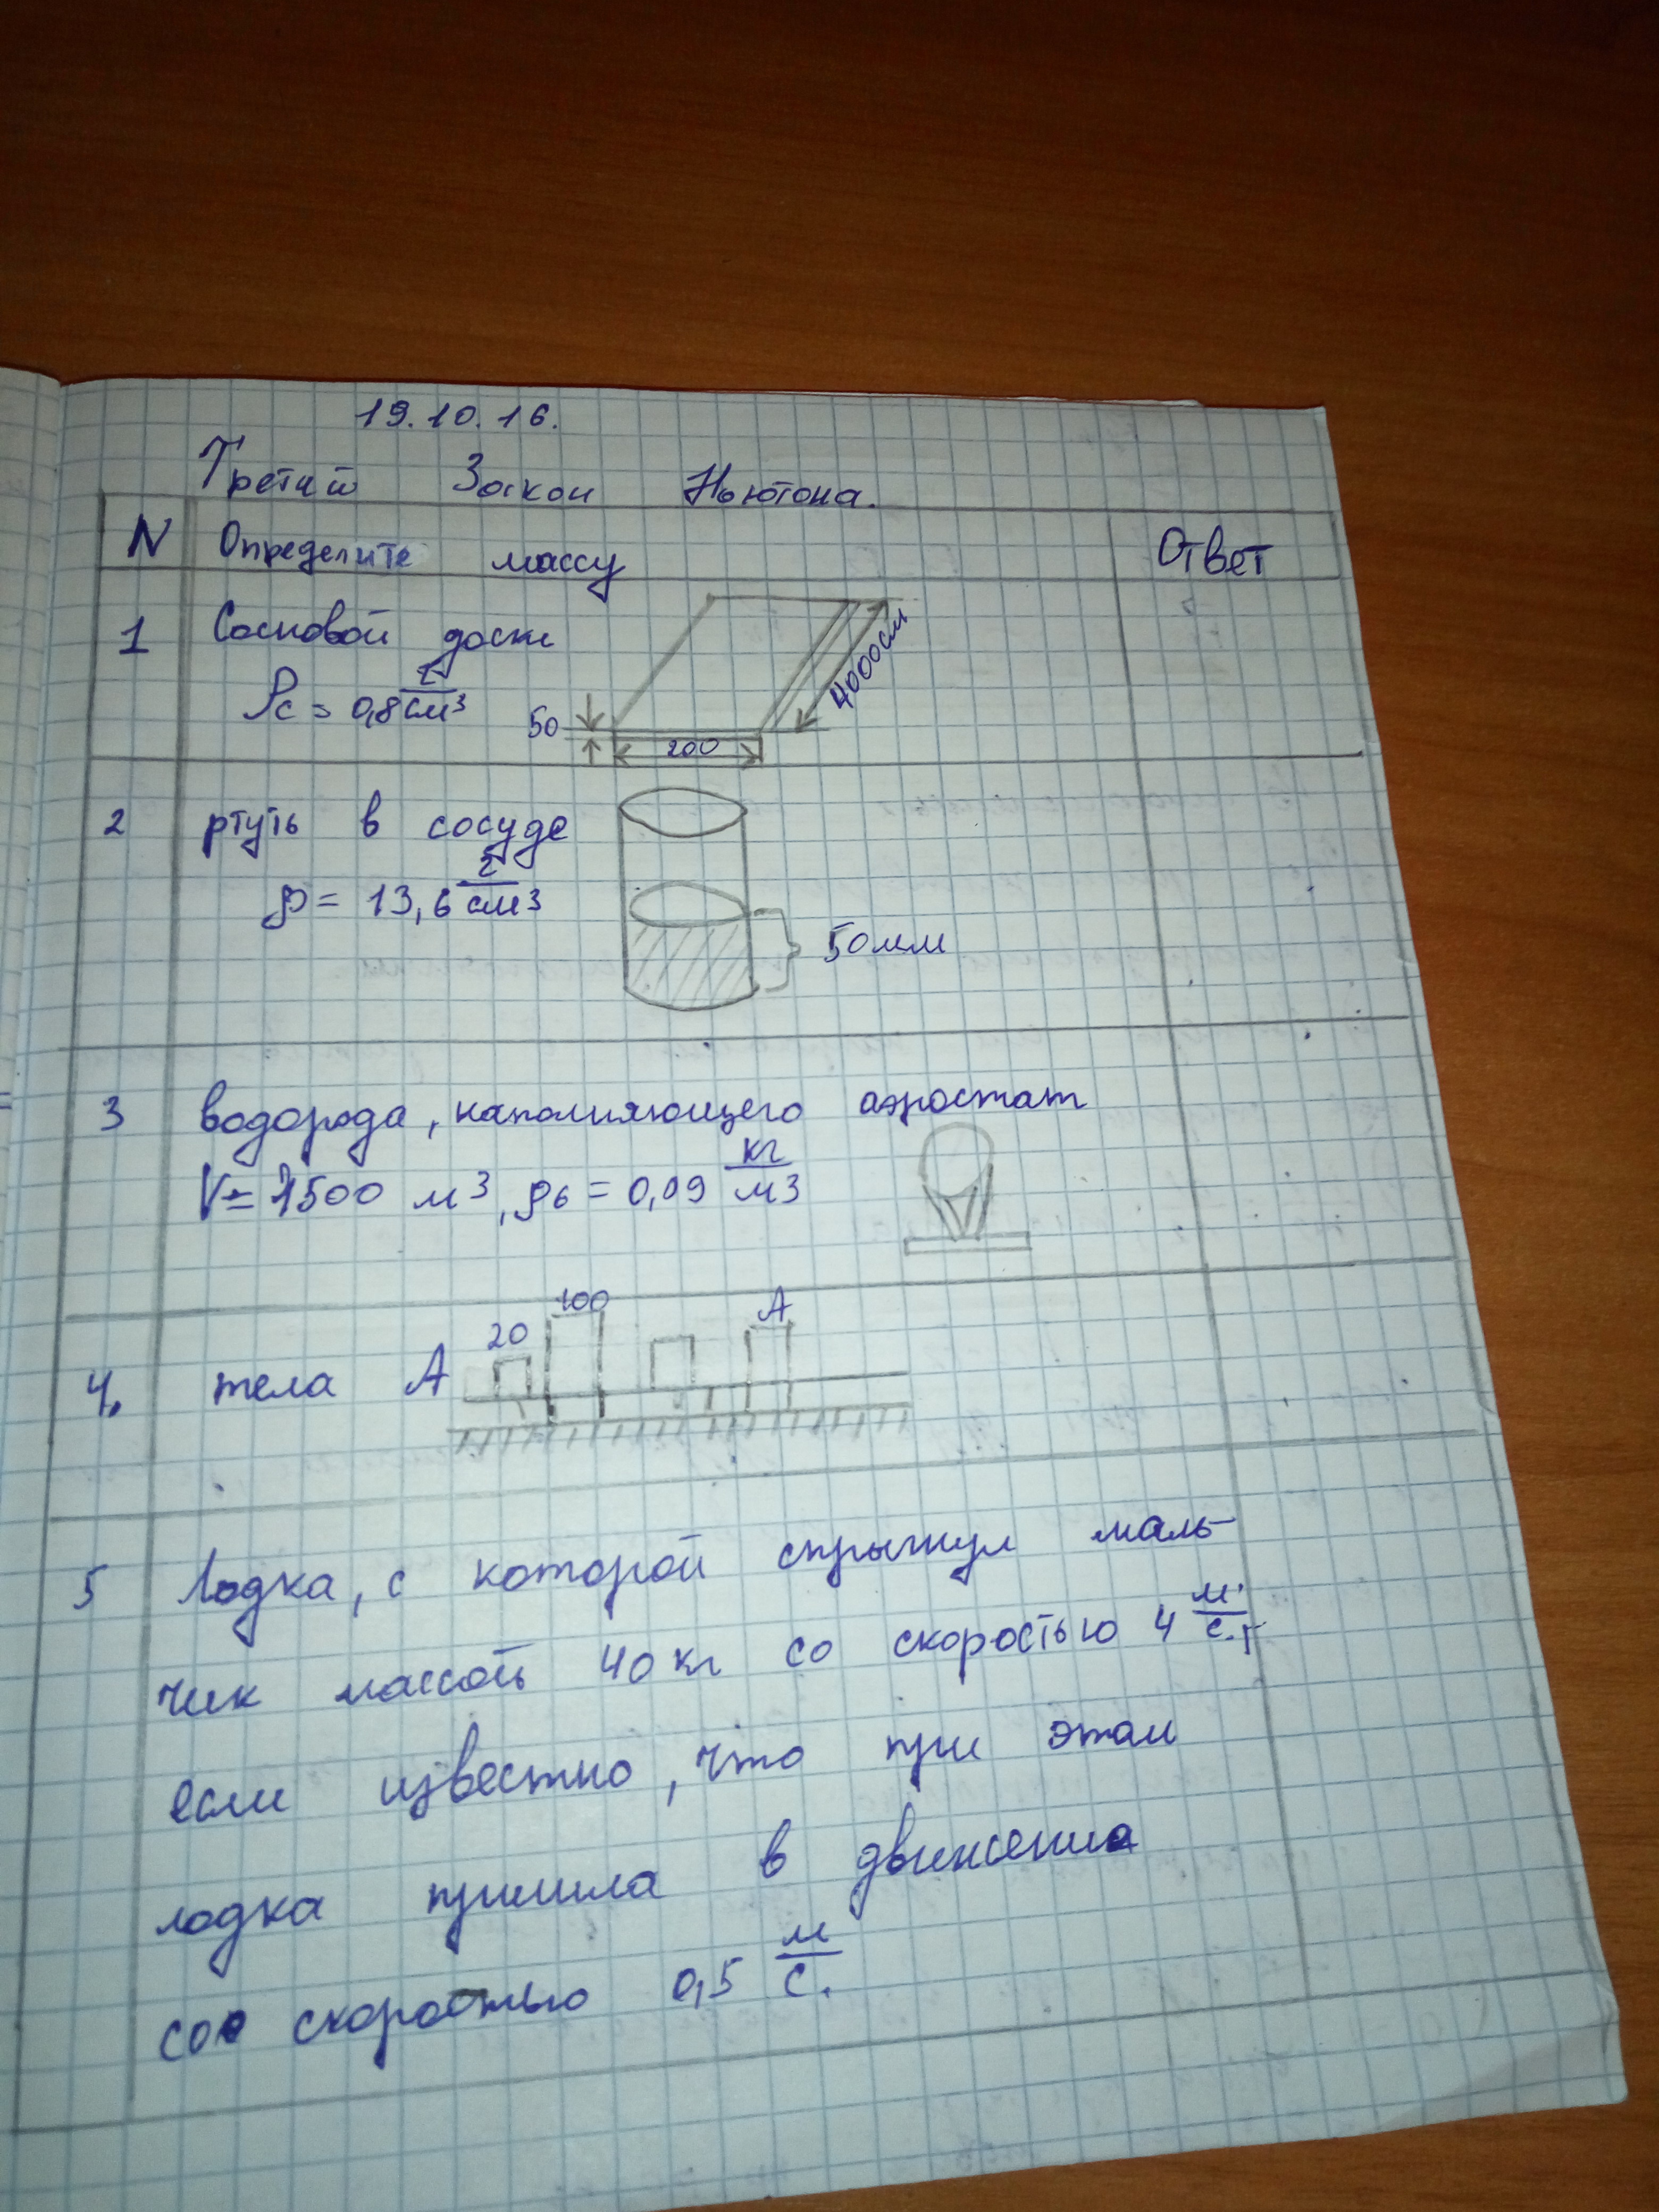 19.10.16.
Третий Закон Ньютона.
N Определите массу Ответ
1 Сосновой доски
ρс = 0,8 г/см³
4000см
50
200
2 ртуть в сосуде
ρ = 13,6 г/см³
50мм
3 водорода, наполняющего аэростат
V = 1500 м³, ρв = 0,09 кг/м3
4. тела А
20 100 А
5 Лодка, с которой спрыгнул маль-
чик массой 40 кг со скоростью 4 м/с.,
если известно, что при этом
лодка пришла в движение
со скоростью 0,5 м/с.